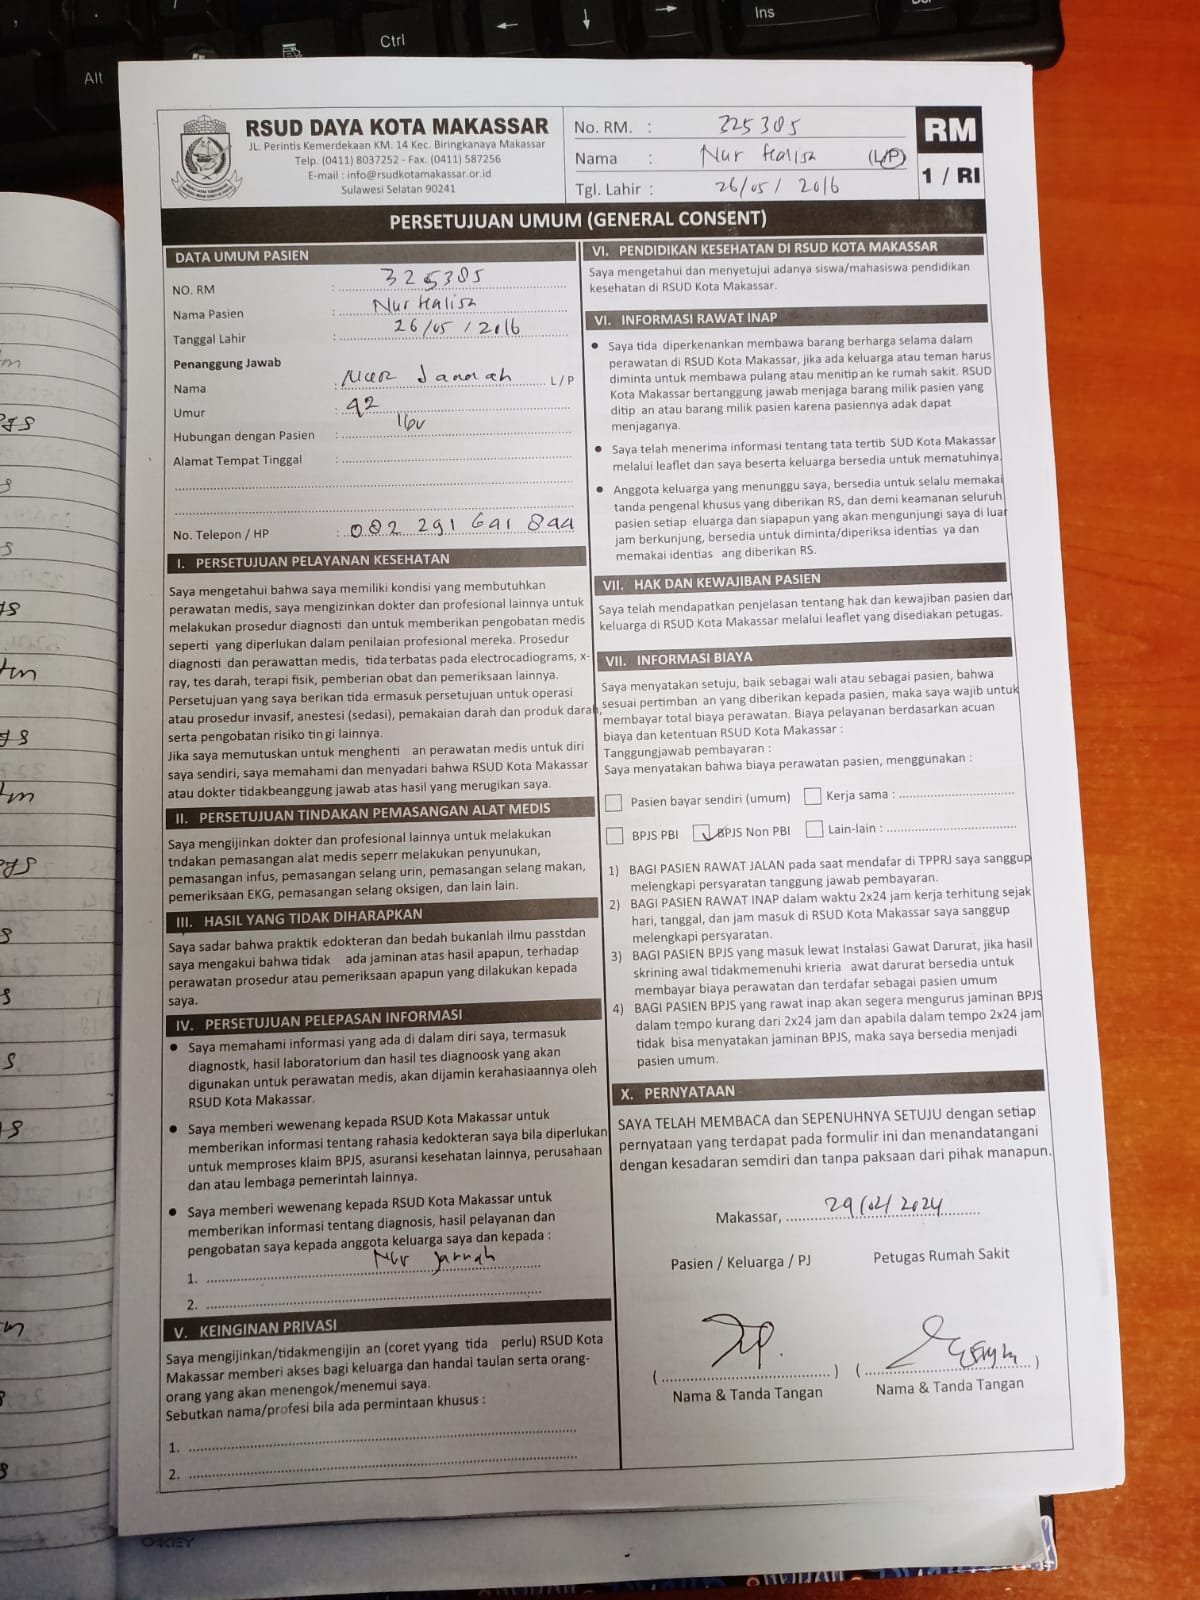 Alt
Ctrl
Ins
RSUD DAYA KOTA MAKASSAR
JL. Perintis Kemerdekaan KM. 14 Kec. Biringkanaya Makassar
Telp. (0411) 8037252 - Fax. (0411) 587256
E-mail : info@rsudkotamakassar.or.id
Sulawesi Selatan 90241
No. RM. : 325385
Nama : Nur Halisa (L/P)
Tgl. Lahir : 26/05/2016
RM
1 / RI
PERSETUJUAN UMUM (GENERAL CONSENT)
DATA UMUM PASIEN
NO. RM : 325385
Nama Pasien : Nur Halisa
Tanggal Lahir : 26/05/2016
Penanggung Jawab
Nama : Nur Jannah L/P
Umur : 42
Hubungan dengan Pasien : Ibu
Alamat Tempat Tinggal :
No. Telepon / HP : 082 291 641 844
I. PERSETUJUAN PELAYANAN KESEHATAN
Saya mengetahui bahwa saya memiliki kondisi yang membutuhkan
perawatan medis, saya mengizinkan dokter dan profesional lainnya untuk
melakukan prosedur diagnosti dan untuk memberikan pengobatan medis
seperti yang diperlukan dalam penilaian profesional mereka. Prosedur
diagnosti dan perawattan medis, tida terbatas pada electrocadiograms, x-
ray, tes darah, terapi fisik, pemberian obat dan pemeriksaan lainnya.
Persetujuan yang saya berikan tida ermasuk persetujuan untuk operasi
atau prosedur invasif, anestesi (sedasi), pemakaian darah dan produk darah,
serta pengobatan risiko tin gi lainnya.
Jika saya memutuskan untuk menghenti an perawatan medis untuk diri
saya sendiri, saya memahami dan menyadari bahwa RSUD Kota Makassar
atau dokter tidakbeanggung jawab atas hasil yang merugikan saya.
II. PERSETUJUAN TINDAKAN PEMASANGAN ALAT MEDIS
Saya mengijinkan dokter dan profesional lainnya untuk melakukan
tndakan pemasangan alat medis seperr melakukan penyunukan,
pemasangan infus, pemasangan selang urin, pemasangan selang makan,
pemeriksaan EKG, pemasangan selang oksigen, dan lain lain.
III. HASIL YANG TIDAK DIHARAPKAN
Saya sadar bahwa praktik edokteran dan bedah bukanlah ilmu passtdan
saya mengakui bahwa tidak ada jaminan atas hasil apapun, terhadap
perawatan prosedur atau pemeriksaan apapun yang dilakukan kepada
saya.
IV. PERSETUJUAN PELEPASAN INFORMASI
● Saya memahami informasi yang ada di dalam diri saya, termasuk
diagnostk, hasil laboratorium dan hasil tes diagnoosk yang akan
digunakan untuk perawatan medis, akan dijamin kerahasiaannya oleh
RSUD Kota Makassar.
● Saya memberi wewenang kepada RSUD Kota Makassar untuk
memberikan informasi tentang rahasia kedokteran saya bila diperlukan
untuk memproses klaim BPJS, asuransi kesehatan lainnya, perusahaan
dan atau lembaga pemerintah lainnya.
● Saya memberi wewenang kepada RSUD Kota Makassar untuk
memberikan informasi tentang diagnosis, hasil pelayanan dan
pengobatan saya kepada anggota keluarga saya dan kepada :
1. Nur Jannah
2.
V. KEINGINAN PRIVASI
Saya mengijinkan/tidakmengijin an (coret yyang tida perlu) RSUD Kota
Makassar memberi akses bagi keluarga dan handai taulan serta orang-
orang yang akan menengok/menemui saya.
Sebutkan nama/profesi bila ada permintaan khusus :
1.
2.
VI. PENDIDIKAN KESEHATAN DI RSUD KOTA MAKASSAR
Saya mengetahui dan menyetujui adanya siswa/mahasiswa pendidikan
kesehatan di RSUD Kota Makassar.
VI. INFORMASI RAWAT INAP
● Saya tida diperkenankan membawa barang berharga selama dalam
perawatan di RSUD Kota Makassar, jika ada keluarga atau teman harus
diminta untuk membawa pulang atau menitip an ke rumah sakit. RSUD
Kota Makassar bertanggung jawab menjaga barang milik pasien yang
ditip an atau barang milik pasien karena pasiennya adak dapat
menjaganya.
● Saya telah menerima informasi tentang tata tertib SUD Kota Makassar
melalui leaflet dan saya beserta keluarga bersedia untuk mematuhinya.
● Anggota keluarga yang menunggu saya, bersedia untuk selalu memakai
tanda pengenal khusus yang diberikan RS, dan demi keamanan seluruh
pasien setiap eluarga dan siapapun yang akan mengunjungi saya di luar
jam berkunjung, bersedia untuk diminta/diperiksa identias ya dan
memakai identias ang diberikan RS.
VII. HAK DAN KEWAJIBAN PASIEN
Saya telah mendapatkan penjelasan tentang hak dan kewajiban pasien dan
keluarga di RSUD Kota Makassar melalui leaflet yang disediakan petugas.
VII. INFORMASI BIAYA
Saya menyatakan setuju, baik sebagai wali atau sebagai pasien, bahwa
sesuai pertimban an yang diberikan kepada pasien, maka saya wajib untuk
membayar total biaya perawatan. Biaya pelayanan berdasarkan acuan
biaya dan ketentuan RSUD Kota Makassar :
Tanggungjawab pembayaran :
Saya menyatakan bahwa biaya perawatan pasien, menggunakan :
Pasien bayar sendiri (umum) Kerja sama :
BPJS PBI BPJS Non PBI Lain-lain :
1) BAGI PASIEN RAWAT JALAN pada saat mendafar di TPPRJ saya sanggup
melengkapi persyaratan tanggung jawab pembayaran.
2) BAGI PASIEN RAWAT INAP dalam waktu 2x24 jam kerja terhitung sejak
hari, tanggal, dan jam masuk di RSUD Kota Makassar saya sanggup
melengkapi persyaratan.
3) BAGI PASIEN BPJS yang masuk lewat Instalasi Gawat Darurat, jika hasil
skrining awal tidakmemenuhi krieria awat darurat bersedia untuk
membayar biaya perawatan dan terdafar sebagai pasien umum
4) BAGI PASIEN BPJS yang rawat inap akan segera mengurus jaminan BPJS
dalam tempo kurang dari 2x24 jam dan apabila dalam tempo 2x24 jam
tidak bisa menyatakan jaminan BPJS, maka saya bersedia menjadi
pasien umum.
X. PERNYATAAN
SAYA TELAH MEMBACA dan SEPENUHNYA SETUJU dengan setiap
pernyataan yang terdapat pada formulir ini dan menandatangani
dengan kesadaran semdiri dan tanpa paksaan dari pihak manapun.
Makassar, 29/02/2024
Pasien / Keluarga / PJ Petugas Rumah Sakit
Nama & Tanda Tangan Nama & Tanda Tangan